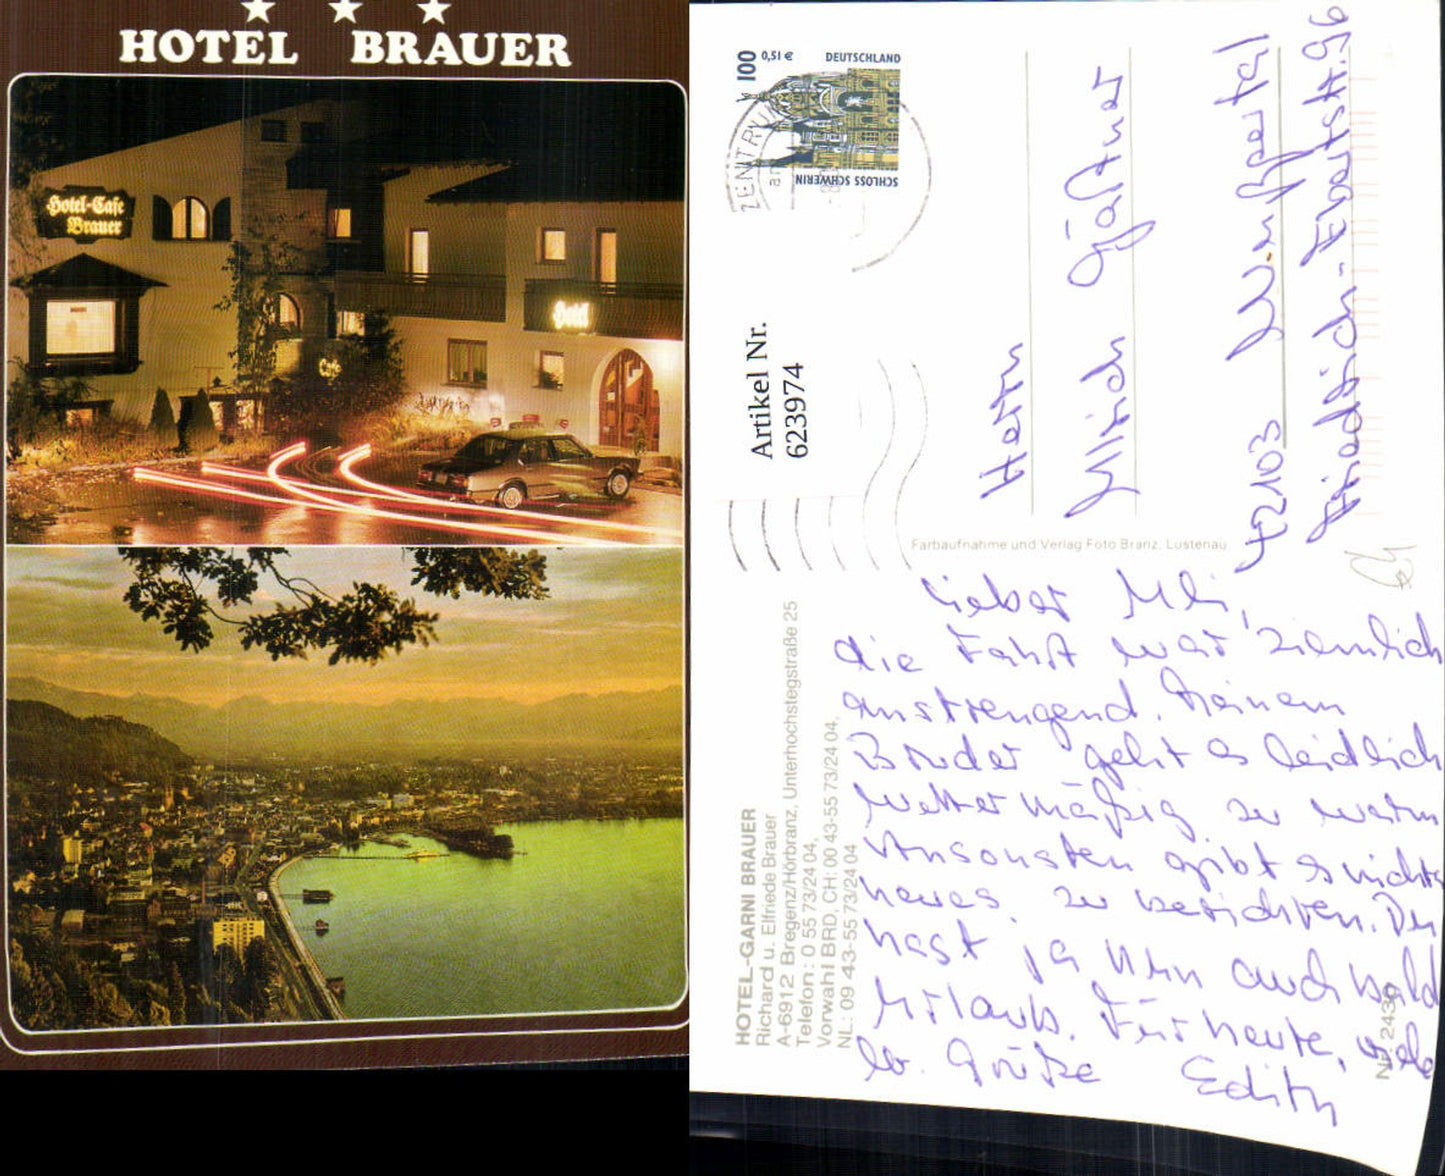 HOTEL BRAUER
Hotel-Cafe
Brauer
Hotel
Café
100 0,51 € DEUTSCHLAND
SCHLOSS SCHWERIN
ZENTRU
Artikel Nr.
623974
Herrn
Ulrich
42103 Wuppertal
Friedrich-Ebertstr. 96
Farbaufnahme und Verlag Foto Branz, Lustenau
HOTEL-GARNI BRAUER
Richard u. Elfriede Brauer
A-6912 Bregenz/Hörbranz, Unterhochstegstraße 25
Telefon: 0 55 73/24 04,
Vorwahl BRD, CH: 00 43-55 73/24 04,
NL: 09 43-55 73/24 04
Nr. 2430
Lieber Uli,
die Fahrt war ziemlich
anstrengend. Meinem
Bruder geht es leidlich
wettermäßig zu warm
Ansonsten gibt es nichts
neues zu berichten. Du
hast ja nun auch bald
Urlaub. Für heute, viele
lb. Grüße Edith